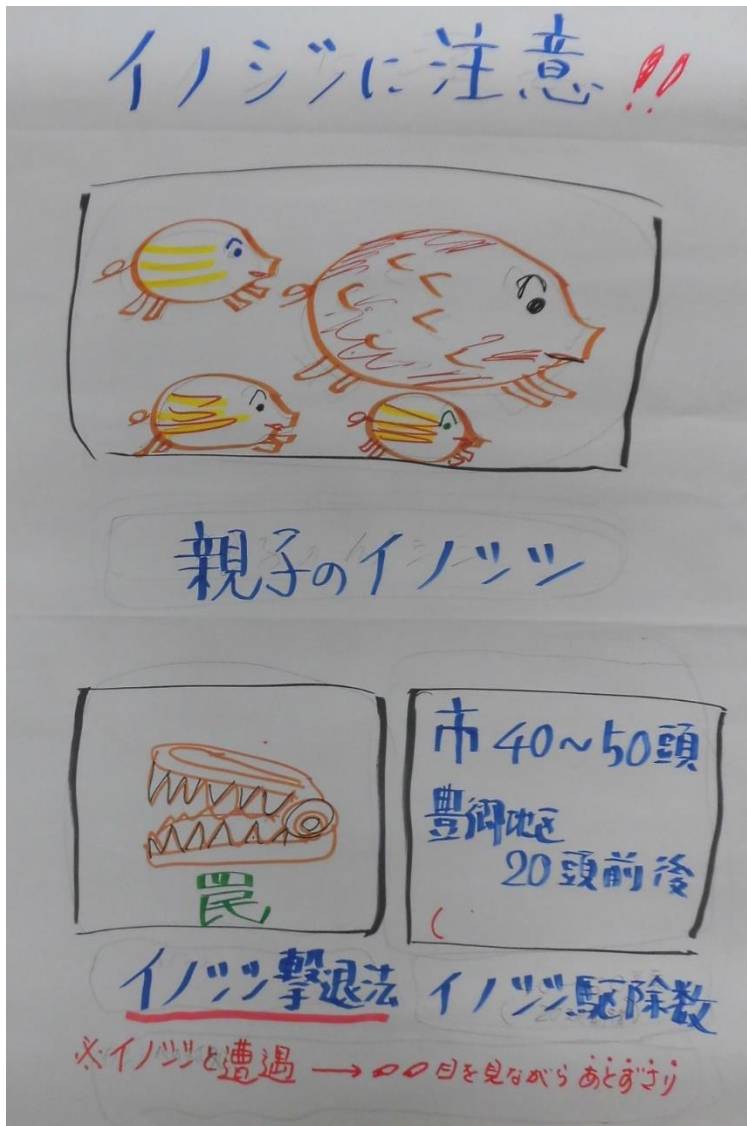 イノシシに注意!!
親子のイノシシ
罠
市 40～50頭
豊郷地区
20頭前後
イノシシ撃退法
イノシシ駆除数
※イノシシと遭遇 → 目を見ながら あとずさり